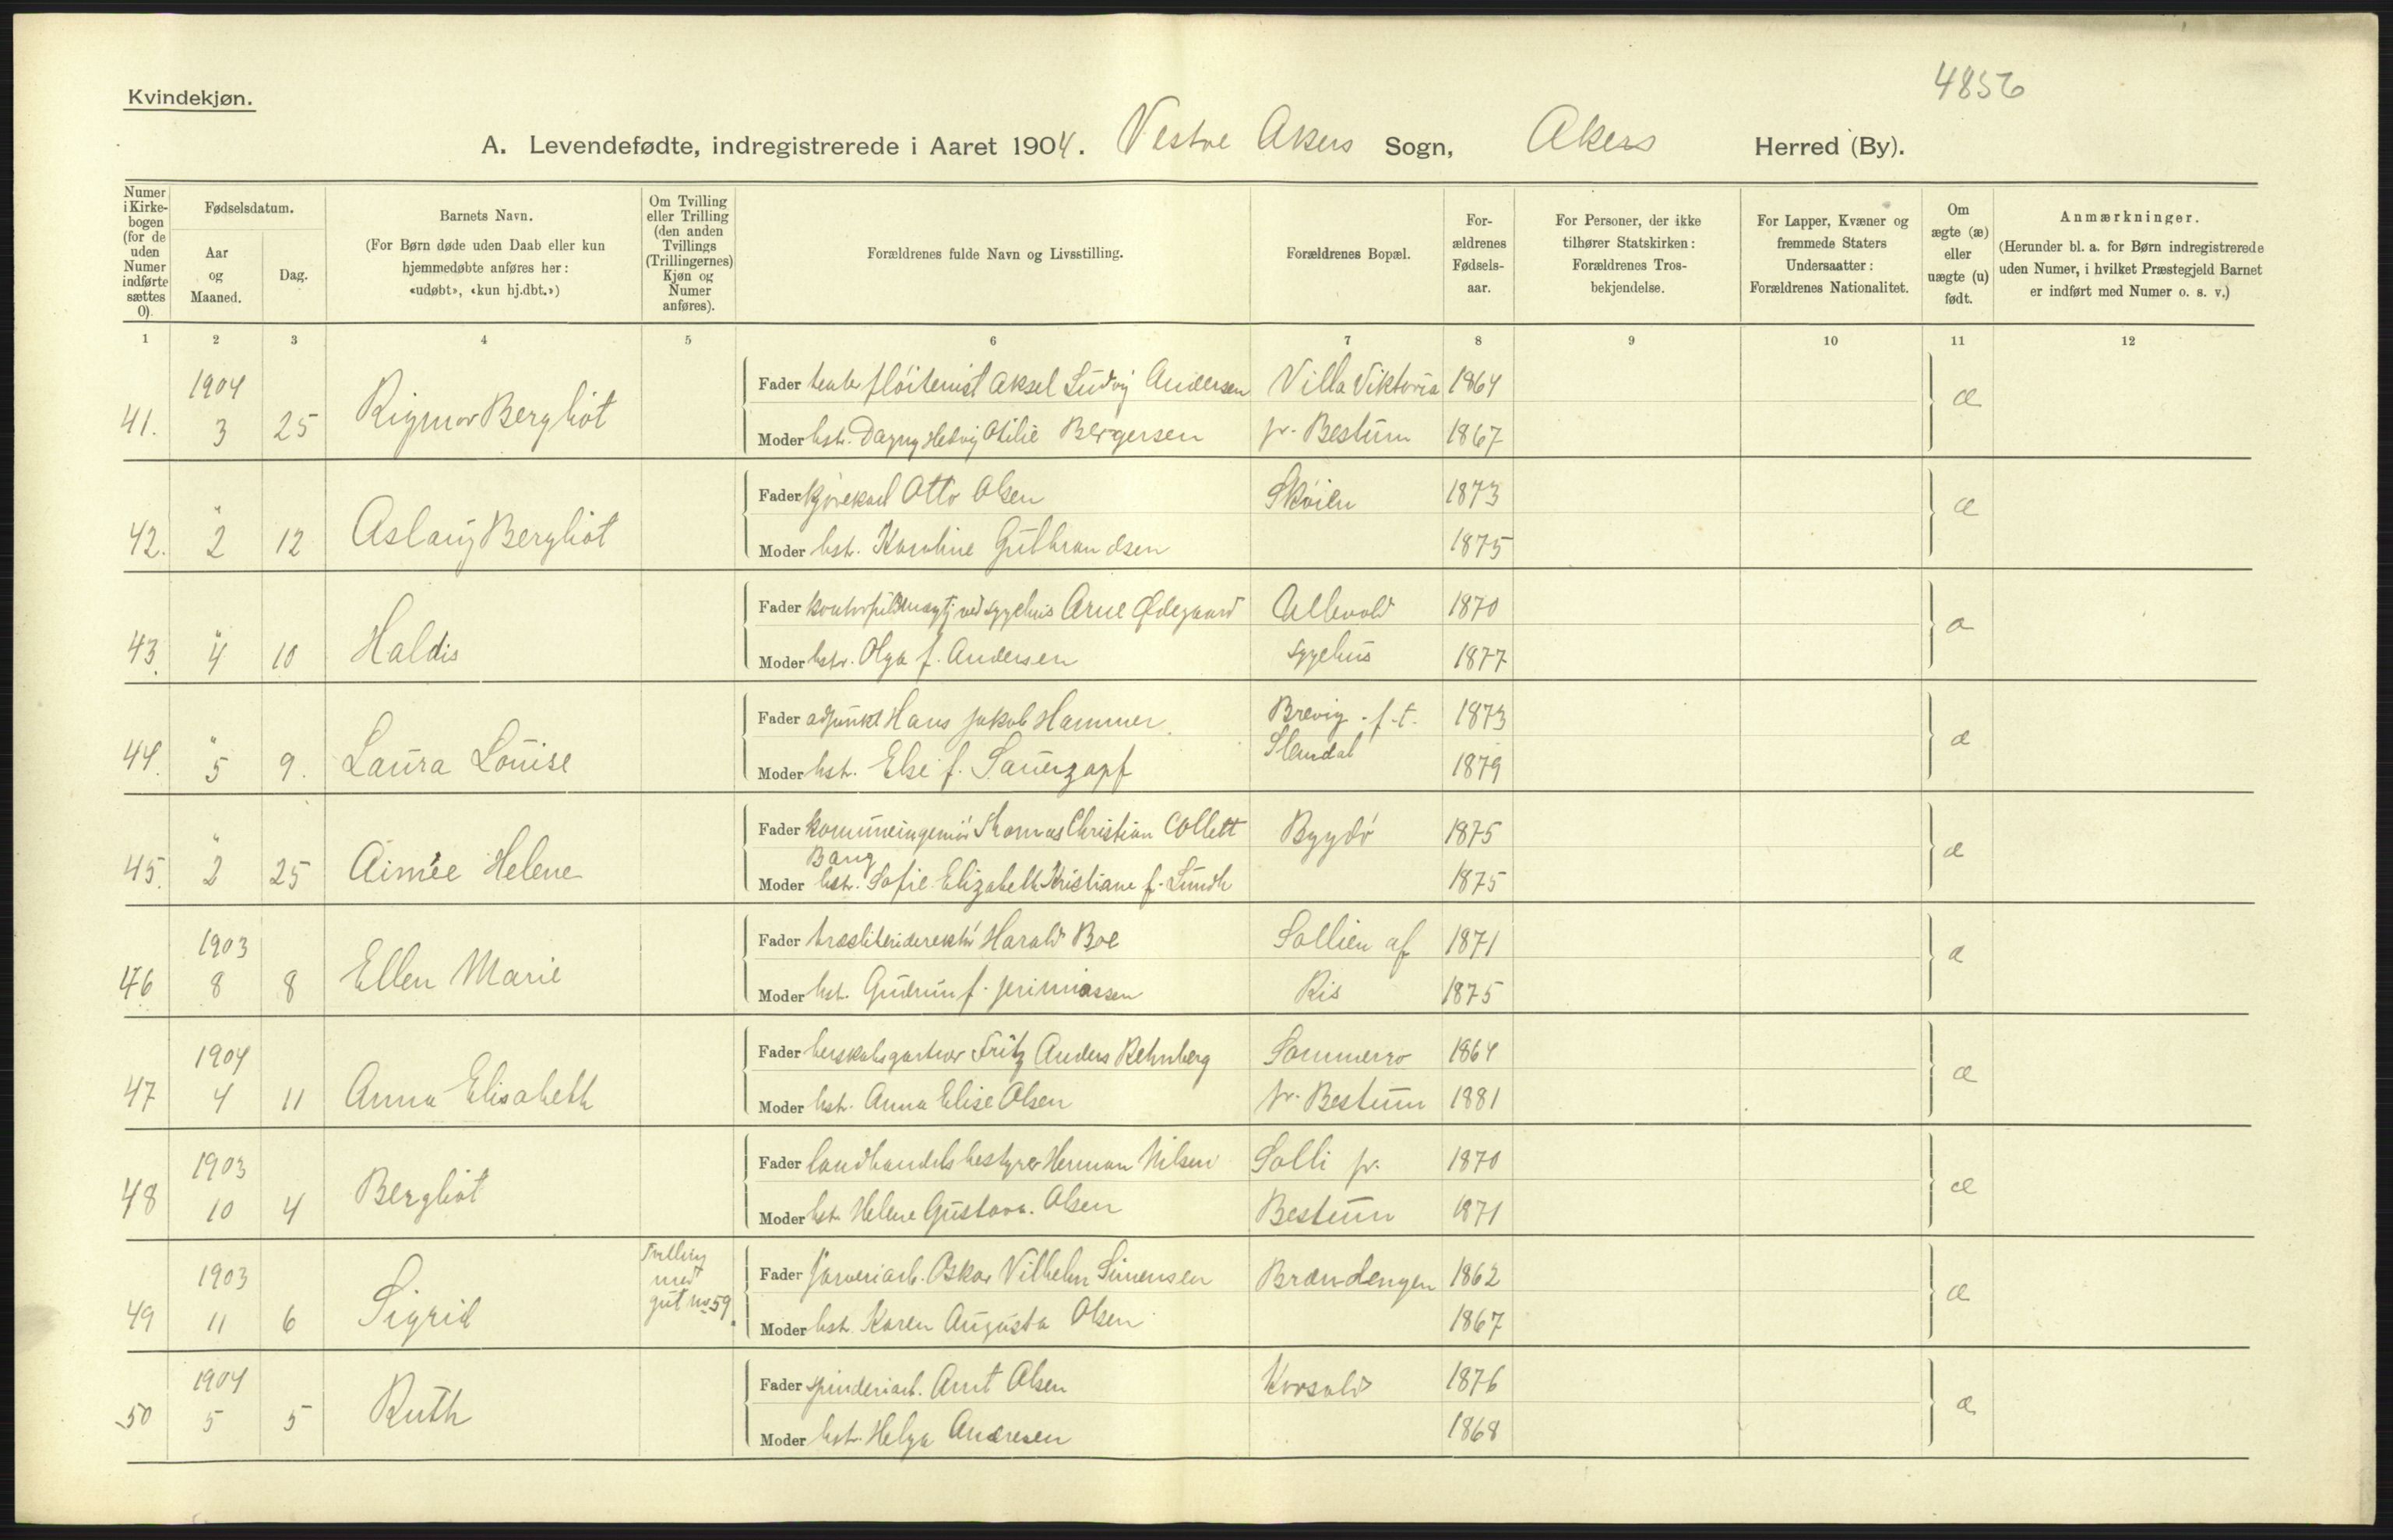 4856
Kvindekjøn.
A. Levendefødte, indregistrerede i Aaret 1904. Vestre Akers Sogn, Akers Herred (By).
Numer i Kirkebogen (for de uden Numer indførte sættes 0).
Fødselsdatum.
Aar og Maaned.
Dag.
Barnets Navn.
(For Børn døde uden Daab eller kun
hjemmedøbte anføres her:
«udøbt», «kun hj.dbt.»)
Om Tvilling
eller Trilling
(den anden
Tvillings
(Trillingernes)
Kjøn og
Numer
anføres).
Forældrenes fulde Navn og Livsstilling.
Forældrenes Bopæl.
For-
ældrenes
Fødsels-
aar.
For Personer, der ikke
tilhører Statskirken:
Forældrenes Tros-
bekjendelse.
For Lapper, Kvæner og
fremmede Staters
Undersaatter:
Forældrenes Nationalitet.
Om
ægte (æ)
eller
uægte (u)
født.
Anmærkninger.
(Herunder bl. a. for Børn indregistrerede
uden Numer, i hvilket Præstegjeld Barnet
er indført med Numer o. s. v.)
1 2 3 4 5 6 7 8 9 10 11 12
1904 Fader fløitenist Aksel Ludvig Andersen Villa Viktoria 1864
41. 3 25 Rigmor Bergliot Moder hstr. Dagny Hedvig Otilie Bergersen pr. Bestum 1867 æ
Fader kjørekarl Otto Olsen Skøien 1873
42. " 2 12 Aslaug Bergliot Moder hstr. Karoline Gulbrandsen 1875 æ
Fader kontorfuldmægtj ved sygehus Arne Ødegaard Ullevold 1870
43. " 4 10 Haldis Moder hstr. Olga f. Andersen sygehus 1877 æ
Fader adjunkt Hans Jakob Hammer Brevig. f.t. 1873
44. " 5 9. Laura Louise Moder hst. Else f. Sauerzapf Slemdal 1879 æ
Fader kommuneingeniør Thomas Christian Collett Bygdø 1875
Bang
45. " 2 25 Aimée Helene Moder hstr. Sofie Elizabeth Kristiane f. Lundh 1875 æ
1903 Fader træsliberidirektør Harald Boe Sollien af 1871
46 8 8 Ellen Marie Moder hst. Gudrun f. Jerimiassen Ris 1875 æ
1904 Fader herskabsgartner Fritz Anders Rehnberg Sommerro 1864
47 4 11 Anna Elisabeth Moder hstr. Anna Elise Olsen pr. Bestum 1881 æ
1903 Fader landhandelsbestyrer Herman Nilsen Solli pr. 1870
48 10 4 Bergliot Moder hst. Helene Gustava Olsen Bestum 1871 æ
1903 Tvilling med gut no 59. Fader farveriarb. Oskar Vilhelm Simensen Brændengen 1862
49 11 6 Sigrid Moder hst. Karen Augusta Olsen 1867 æ
1904 Fader spinderiarb. Anut Olsen Korsvold 1876
50 5 5 Ruth Moder hstr. Helga Andresen 1868 æ